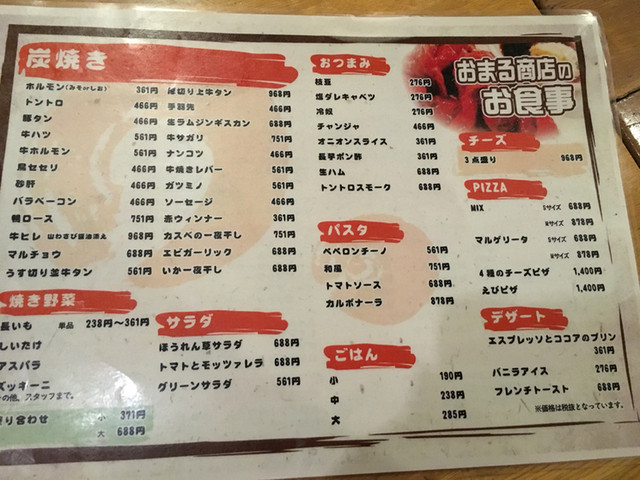 おまる商店の
お食事
炭焼き
ホルモン(みそorしお) 361円
トントロ 466円
豚タン 466円
牛ハツ 561円
牛ホルモン 561円
鳥セセリ 466円
砂肝 466円
バラベーコン 466円
鴨ロース 751円
牛ヒレ 山わさび醤油添え 968円
マルチョウ 688円
うす切り並牛タン 561円
厚切り上牛タン 968円
手羽先 466円
生ラムジンギスカン 688円
牛サガリ 751円
ナンコツ 466円
牛焼きレバー 561円
ガツミノ 561円
ソーセージ 466円
赤ウィンナー 361円
カスベの一夜干し 688円
エビガーリック 688円
いか一夜干し 688円
焼き野菜
長いも 単品 238円〜361円
しいたけ
アスパラ
ズッキーニ
その他、スタッフまで。
盛り合わせ 小 371円
大 688円
サラダ
ほうれん草サラダ 688円
トマトとモッツァレラ 688円
グリーンサラダ 561円
おつまみ
枝豆 276円
塩ダレキャベツ 276円
冷奴 276円
チャンジャ 466円
オニオンスライス 361円
長芋ポン酢 361円
生ハム 688円
トントロスモーク 688円
パスタ
ペペロンチーノ 561円
和風 751円
トマトソース 688円
カルボナーラ 878円
ごはん
小 190円
中 238円
大 285円
チーズ
3点盛り 968円
PIZZA
MIX Sサイズ 688円
Mサイズ 878円
マルゲリータ Sサイズ 688円
Mサイズ 878円
4種のチーズピザ 1,400円
えびピザ 1,400円
デザート
エスプレッソとココアのプリン
361円
バニラアイス 276円
フレンチトースト 688円
※価格は税抜となっています。